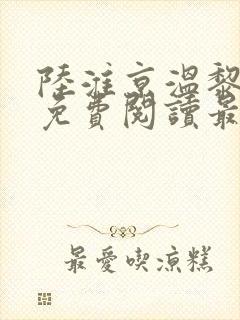 陸淮京溫黎
免費閱讀最
最愛喫涼糕